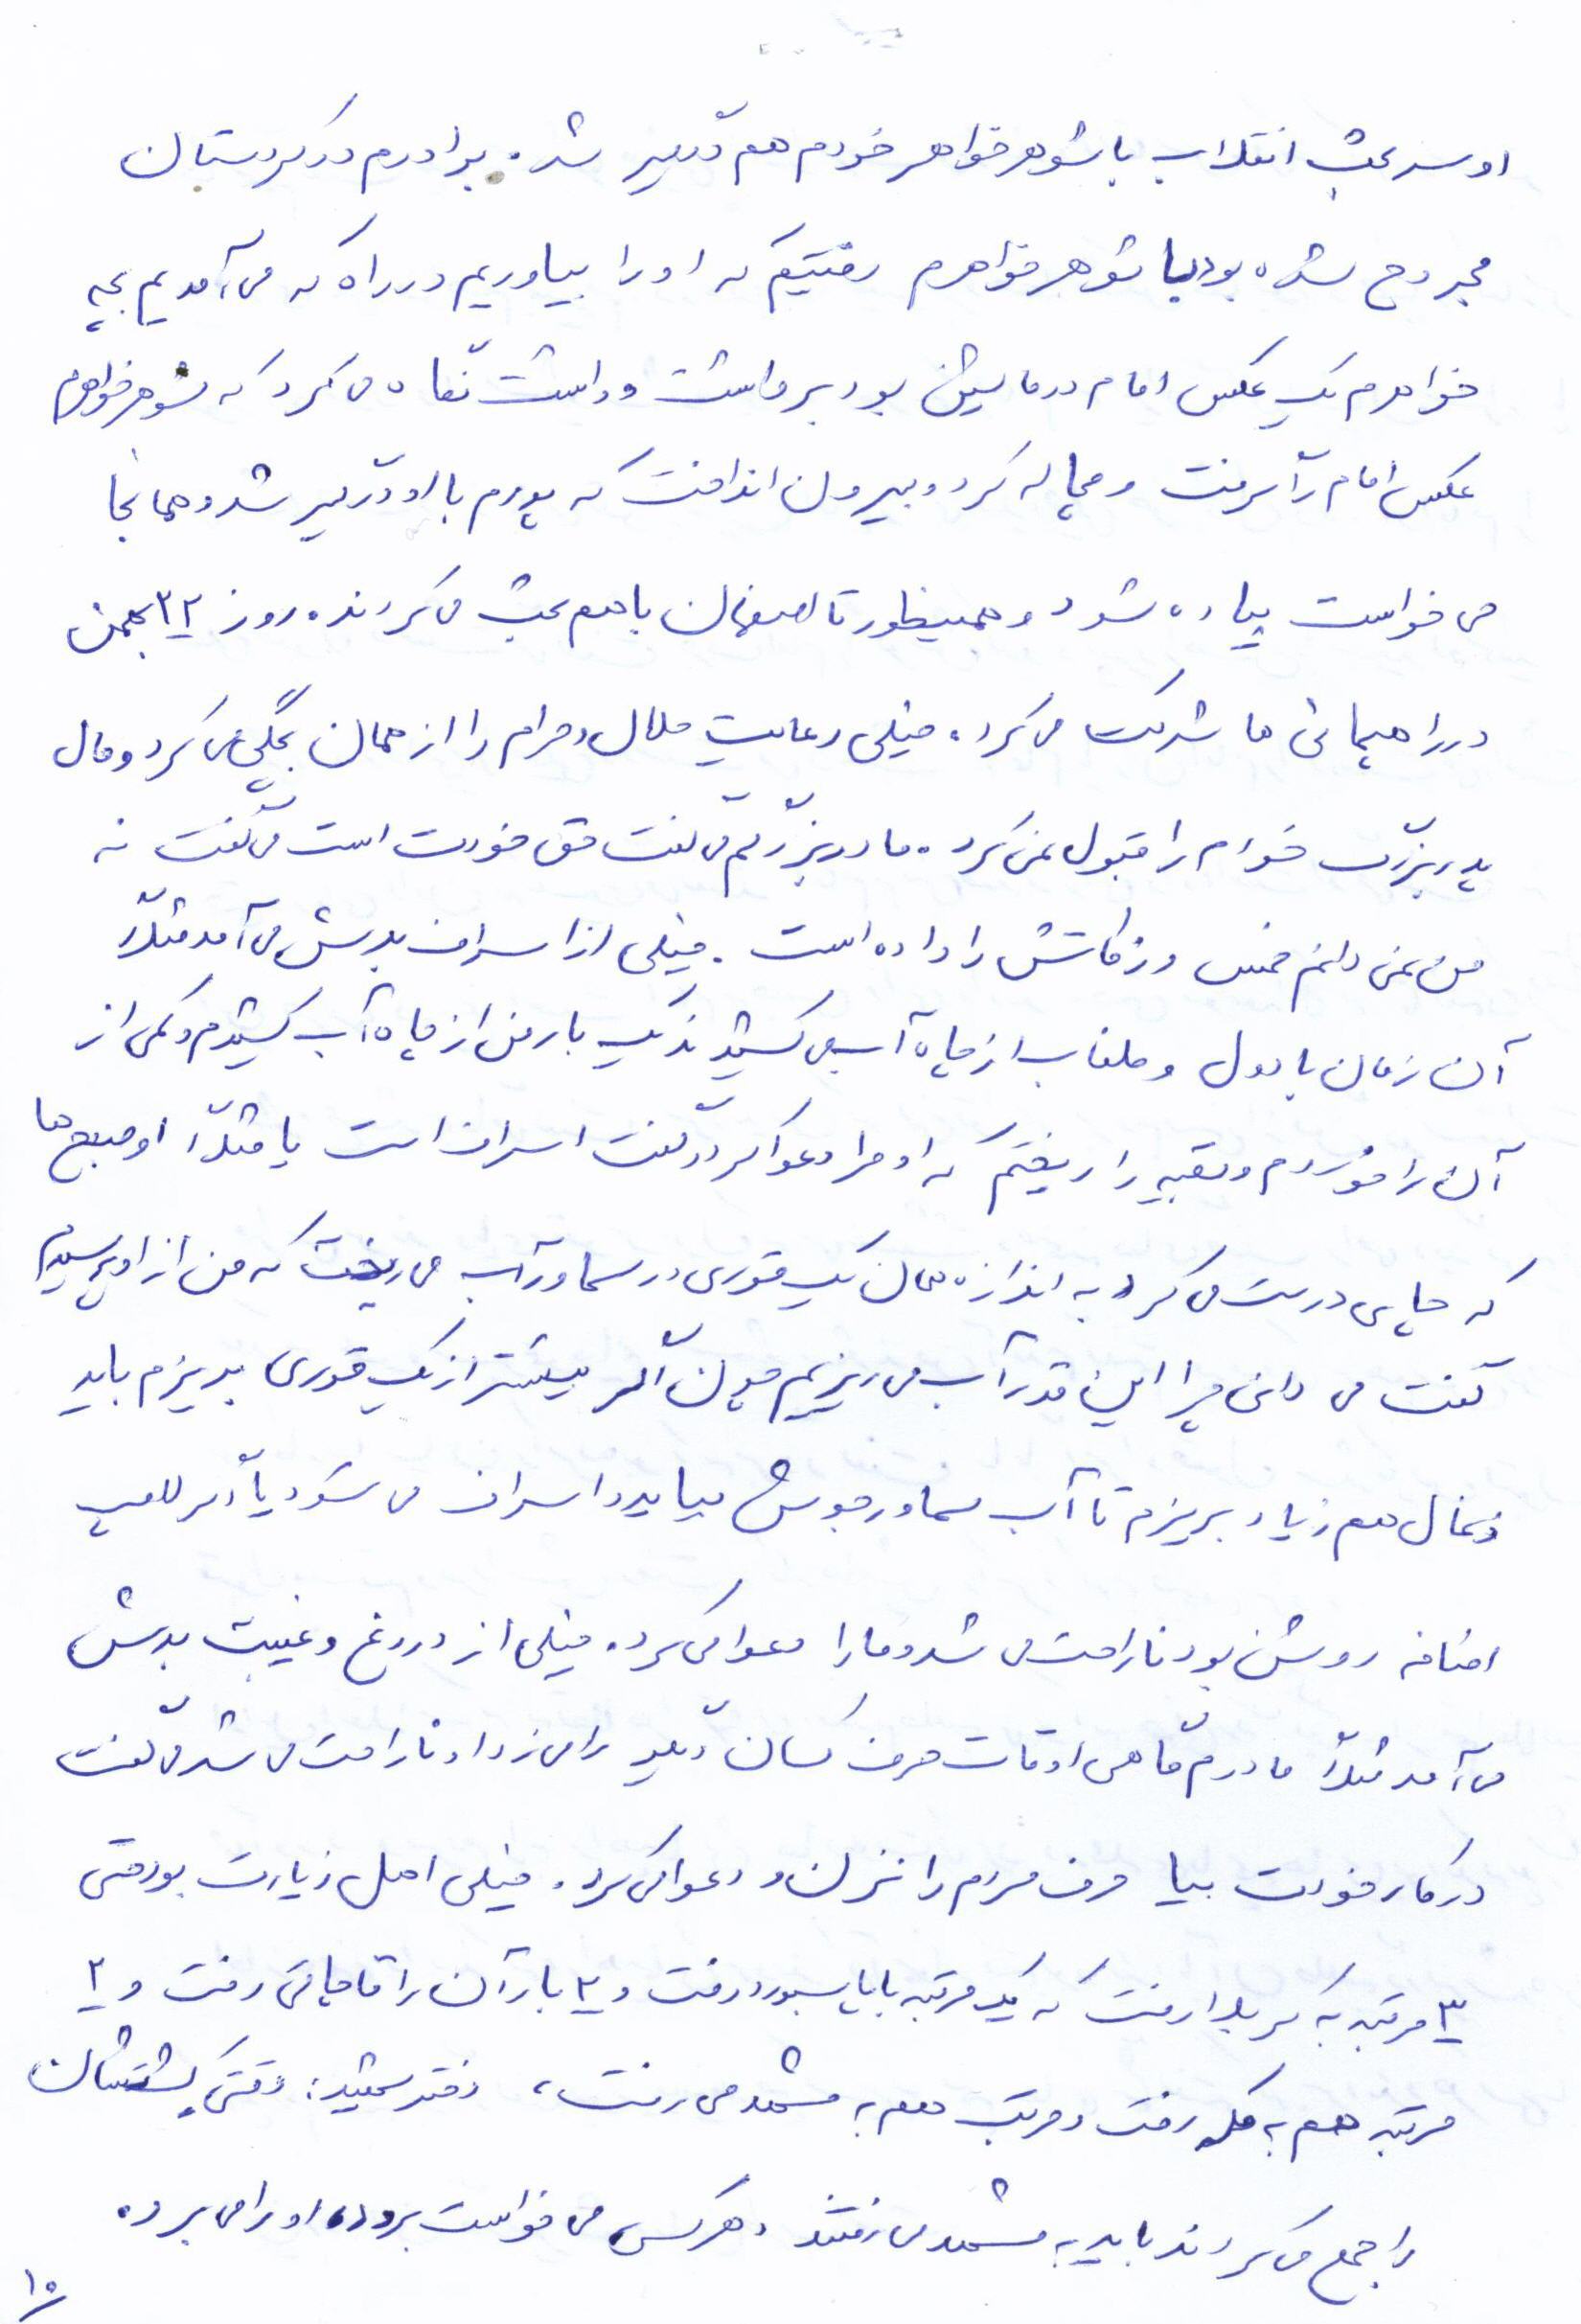 او سر بحث انقلاب با شوهر خواهر خودم هم درگیر شد. برادرم در کردستان
مجروح شده بود با شوهر خواهرم رفتیم که او را بیاوریم در راه که می‌آمدیم بچه
خواهرم یک عکس امام در ماشین بود برداشت و داشت نگاه می‌کرد که شوهر خواهرم
عکس امام را گرفت و مچاله کرد و بیرون انداخت که پدرم با او درگیر شد و همانجا
می‌خواست پیاده شود و همینطور تا اصفهان با هم بحث می‌کردند. روز ۲۲ بهمن
در راهپیمائی ها شرکت می‌کرد. خیلی رعایت حلال و حرام را از همان بچگی می‌کرد و مال
پدربزرگ خدام را قبول نمی‌کرد. مادربزرگم می‌گفت حق خودت است می‌گفت نه
من نمی دانم خمس و زکاتش را داده است. خیلی از اسراف بدش می‌آمد مثلاً
آن زمان با دول و طناب از چاه آب می‌کشیدند یک بار من از چاه آب کشیدم و کمی از
آن را خوردم و بقیه را ریختم که او مرا دعوا کرد و گفت اسراف است یا مثلاً او صبح ها
که چای درست می‌کرد به اندازه همان یک قوری در سماور آب می‌ریخت که من از او پرسیدم
گفت می دانی چرا این قدر آب می‌ریزیم چون اگر بیشتر از یک قوری بریزم باید
ذغال هم زیاد بریزم تا آب سماور جوش بیاید و اسراف می شود یا اگر لامپ
اضافه روشن بود ناراحت می شد و ما را دعوا می‌کرد. خیلی از دروغ و غیبت بدش
می‌آمد مثلاً مادرم گاهی اوقات حرف کسان دیگر را می‌زد او ناراحت می شد می گفت
در کار خودت بیا حرف مردم را نزن و دعوا می‌کرد. خیلی اهل زیارت بود حتی
۳ مرتبه به کربلا رفت که یک مرتبه با پاسپورد رفت و ۲ بار آن را قاچاقی رفت و ۲
مرتبه هم به مکه رفت و مرتب هم به مشهد می رفت، دختر شهید: وقتی کشتشان
را جمع می‌کردند باید به مشهد می رفتند و هر کس می خواست برود او را می برد.
۱۰